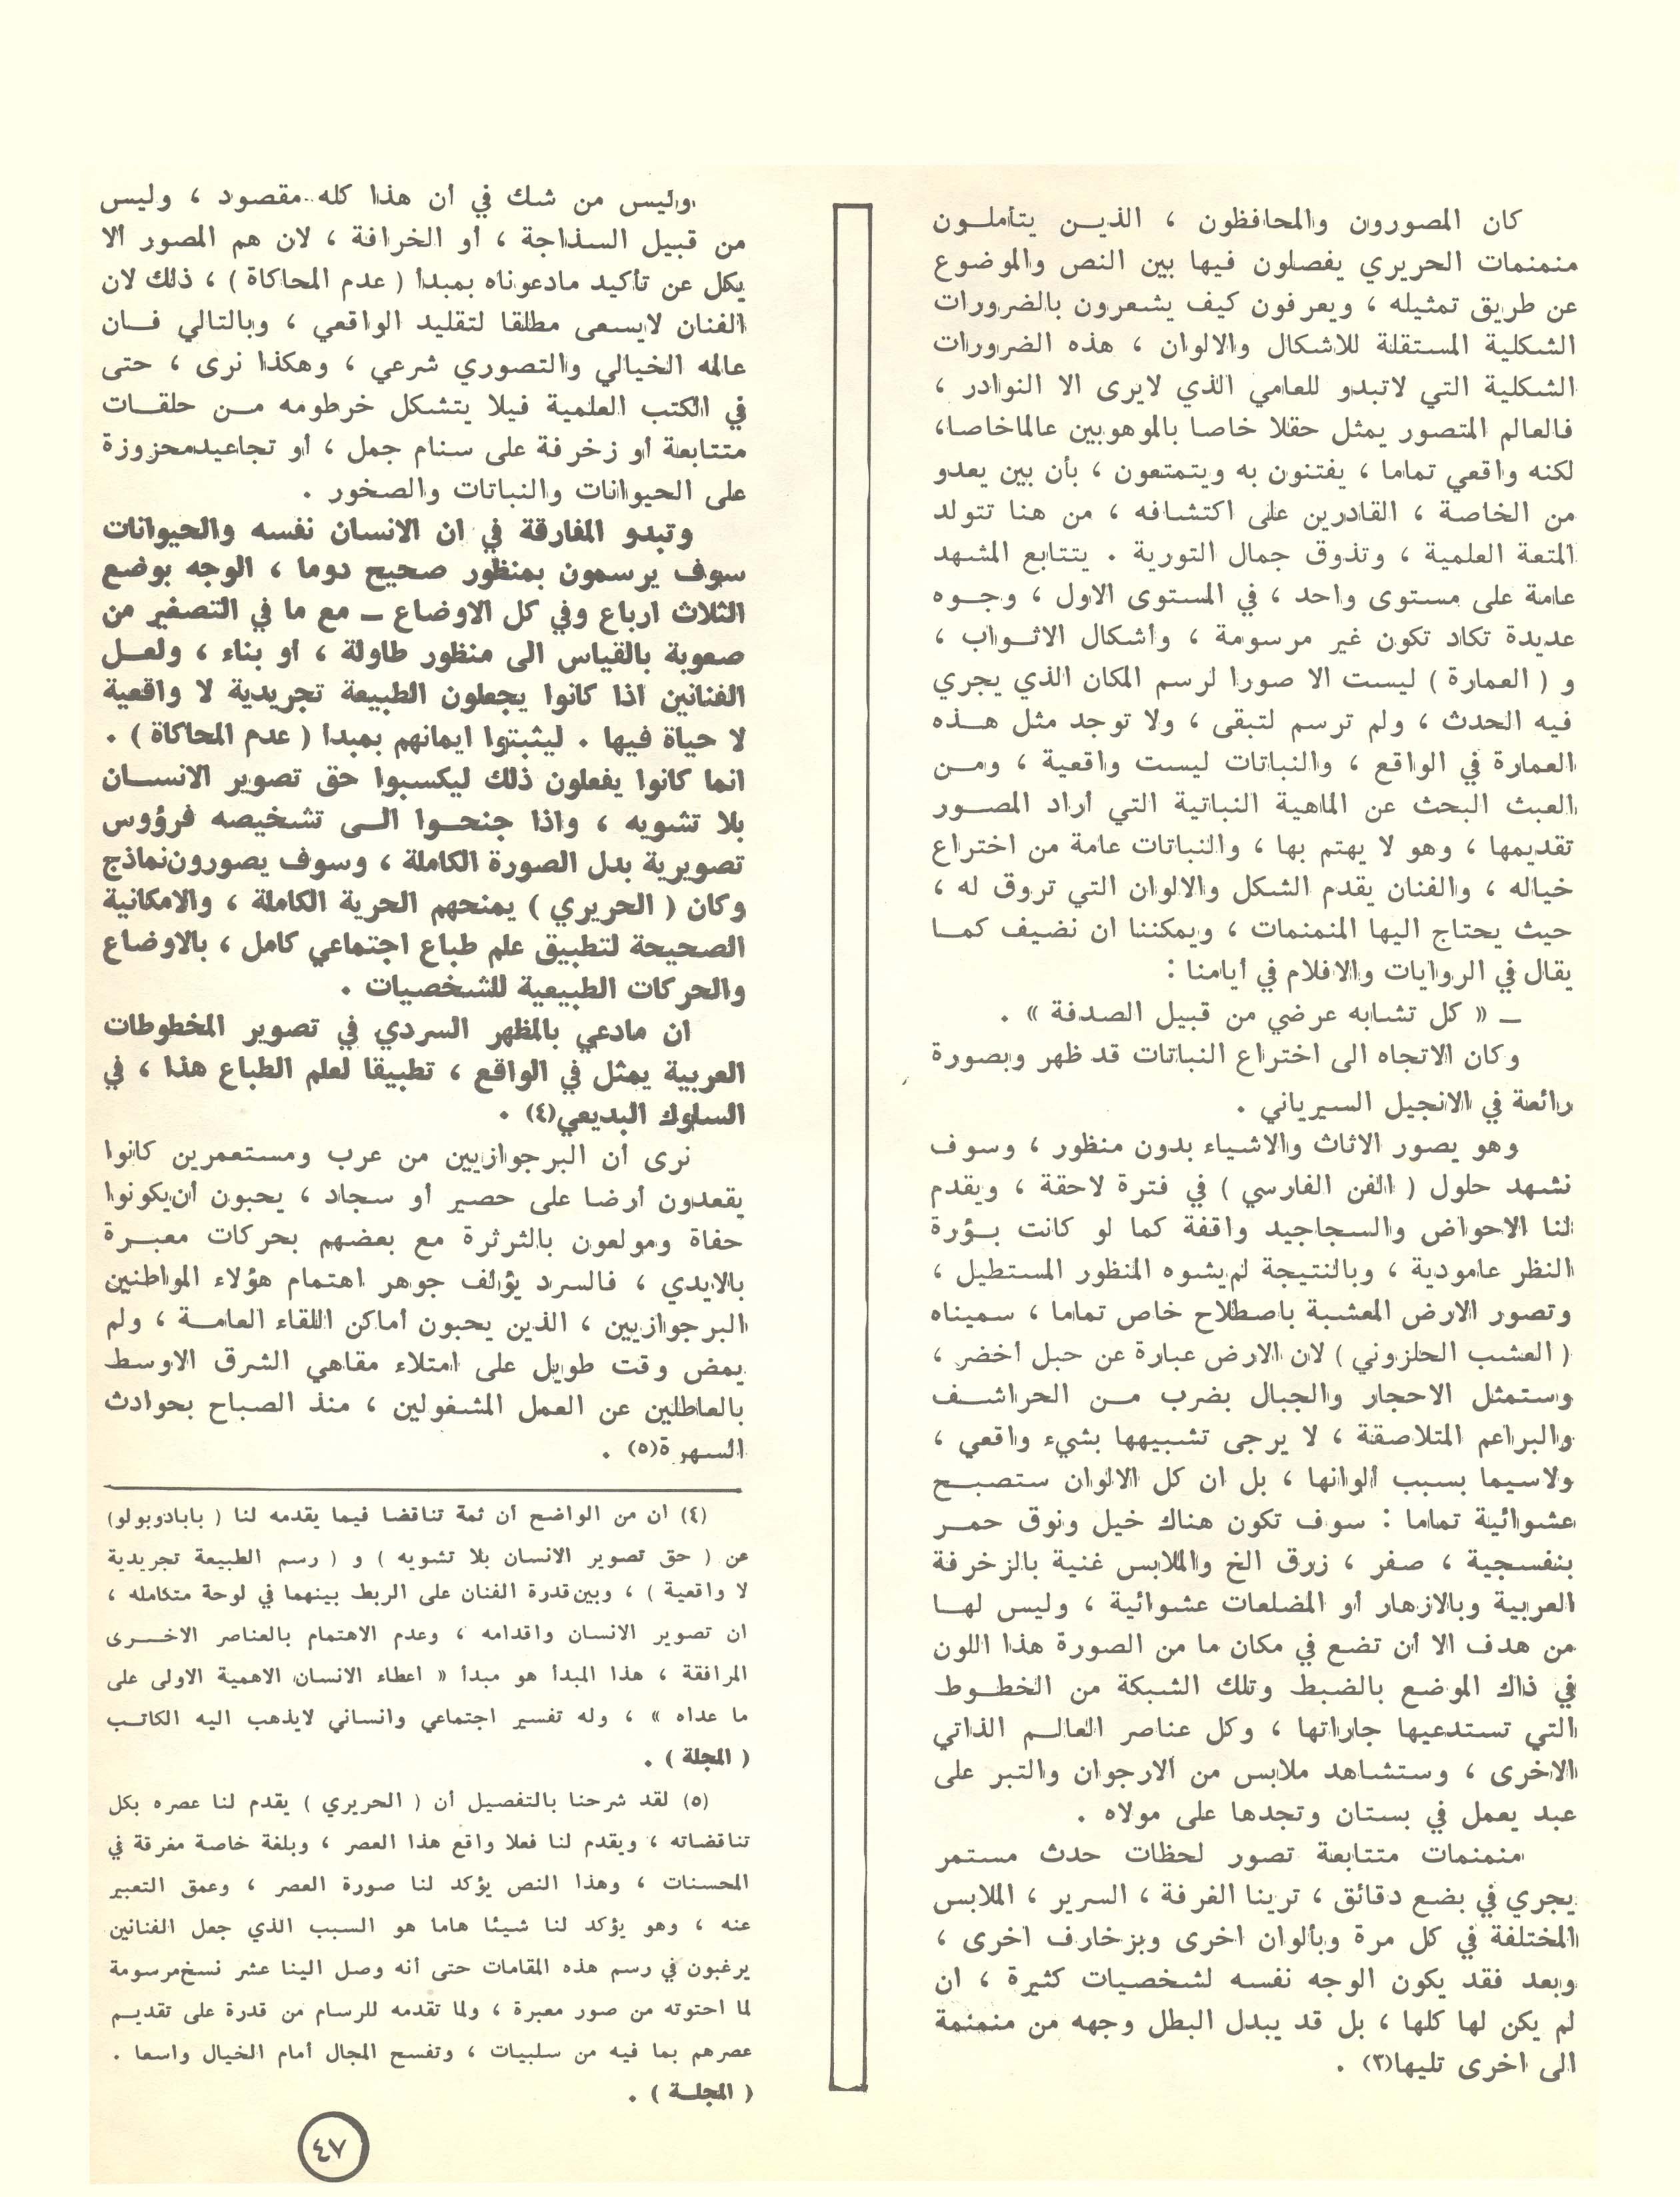 كان المصورون والمحافظون ، الذيـن يتأملـون
منمنمات الحريري يفصلون فيها بين النص والموضوع
عن طريق تمثيله ، ويعرفون كيف يشعرون بالضرورات
الشكلية المستقلة للاشكال والالوان ، هذه الضرورات
الشكلية التي لاتبدو للعامي الذي لايرى الا النوادر ،
فالعالم المتصور يمثل حقلا خاصا بالموهوبين عالماخاصا،
لكنه واقعي تماما ، يفتنون به ويتمتعون ، بأن بين يعدو
من الخاصة ، القادرين على اكتشافه ، من هنا تتولد
المتعة العلمية ، وتذوق جمال التورية . يتتابع المشهد
عامة على مستوى واحد ، في المستوى الاول ، وجـوه
عديدة تكاد تكون غير مرسومة ، وأشكال الاثـواب ،
و ( العمارة ) ليست الا صورا لرسم المكان الذي يجري
فيه الحدث ، ولم ترسم لتبقى ، ولا توجد مثل هـذه
العمارة في الواقع ، والنباتات ليست واقعية ، ومـن
العبث البحث عن الماهية النباتية التي أراد المصـور
تقديمها ، وهو لا يهتم بها ، والنباتات عامة من اختراع
خياله ، والفنان يقدم الشكل والالوان التي تروق له ،
حيث يحتاج اليها المنمنمات ، ويمكننا ان نضيف كمـا
يقال في الروايات والافلام في أيامنا :
ـ « كل تشابه عرضي من قبيل الصدفة » .
وكان الاتجاه الى اختراع النباتات قد ظهر وبصورة
رائعة في الانجيل السيرياني .
وهو يصور الاثاث والاشياء بدون منظور ، وسوف
نشهد حلول ( الفن الفارسي ) في فترة لاحقة ، ويقدم
لنا الاحواض والسجاجيد واقفة كما لو كانت بـؤرة
النظر عامودية ، وبالنتيجة لم يشوه المنظور المستطيل ،
وتصور الارض المعشبة باصطلاح خاص تماما ، سميناه
( العشب الحلزوني ) لان الارض عبارة عن حبل أخضر ،
وستمثل الاحجار والجبال بضرب مـن الحراشـف
والبراعم المتلاصقة ، لا يرجى تشبيهها بشيء واقعي ،
ولاسيما بسبب ألوانها ، بل ان كل الالوان ستصبـح
عشوائية تماما : سوف تكون هناك خيل ونوق حمـر
بنفسجية ، صفر ، زرق الخ والملابس غنية بالزخرفة
العربية وبالازهار أو المضلعات عشوائية ، وليس لهـا
من هدف الا أن تضع في مكان ما من الصورة هذا اللون
في ذاك الموضع بالضبط وتلك الشبكة من الخطـوط
التي تستدعيها جاراتها ، وكل عناصر العالـم الذاتي
الاخرى ، وستشاهد ملابس من الارجوان والتبر على
عبد يعمل في بستان وتجدها على مولاه .
منمنمات متتابعة تصور لحظات حدث مستمر
يجري في بضع دقائق ، ترينا الغرفة ، السرير ، الملابس
المختلفة في كل مرة وبألوان اخرى وبزخارف اخرى ،
وبعد فقد يكون الوجه نفسه لشخصيات كثيرة ، ان
لم يكن لها كلها ، بل قد يبدل البطل وجهه من منمنمة
الى اخرى تليها(٣) .
وليس من شك في أن هذا كله مقصود ، وليس
من قبيل السذاجة ، أو الخرافة ، لان هم المصور ألا
يكل عن تأكيد مادعوناه بمبدأ ( عدم المحاكاة ) ، ذلك لان
الفنان لايسعى مطلقا لتقليد الواقعي ، وبالتالي فـان
عالمه الخيالي والتصوري شرعي ، وهكذا نرى ، حتى
في الكتب العلمية فيلا يتشكل خرطومه مـن حلقـات
متتابعة أو زخرفة على سنام جمل ، أو تجاعيدمحزوزة
على الحيوانات والنباتات والصخور .
وتبدو المفارقة في ان الانسان نفسه والحيوانات
سوف يرسمون بمنظور صحيح دوما ، الوجه بوضع
الثلاث ارباع وفي كل الاوضاع ـ مع ما في التصغير من
صعوبة بالقياس الى منظور طاولة ، أو بناء ، ولعـل
الفنانين اذا كانوا يجعلون الطبيعة تجريدية لا واقعية
لا حياة فيها . ليثبتوا ايمانهم بمبدأ ( عدم المحاكاة ) .
انما كانوا يفعلون ذلك ليكسبوا حق تصوير الانسـان
بلا تشويه ، واذا جنحـوا الـى تشخيصه فرؤوس
تصويرية بدل الصورة الكاملة ، وسوف يصورون نماذج
وكان ( الحريري ) يمنحهم الحرية الكاملة ، والامكانية
الصحيحة لتطبيق علم طباع اجتماعي كامل ، بالاوضاع
والحركات الطبيعية للشخصيات .
ان مادعي بالمظهر السردي في تصوير المخطوطات
العربية يمثل في الواقع ، تطبيقا لعلم الطباع هذا ، في
السلوك البديعي(٤) .
نرى أن البرجوازيين من عرب ومستعمرين كانوا
يقعدون أرضا على حصير أو سجاد ، يحبون أن يكونوا
حفاة ومولعون بالثرثرة مع بعضهم بحركات معبـرة
بالايدي ، فالسرد يؤلف جوهر اهتمام هؤلاء المواطنين
البرجوازيين ، الذين يحبون أماكن اللقاء العامـة ، ولم
يمض وقت طويل على امتلاء مقاهي الشرق الاوسط
بالعاطلين عن العمل المشغولين ، منذ الصباح بحوادث
السهرة(٥) .
(٤) ان من الواضح أن ثمة تناقضا فيما يقدمه لنا ( بابادوبولو)
عن ( حق تصوير الانسان بلا تشويه ) و ( رسم الطبيعة تجريدية
لا واقعية ) ، وبين قدرة الفنان على الربط بينهما في لوحة متكامله ،
ان تصوير الانسان واقدامه ، وعدم الاهتمام بالعناصر الاخـرى
المرافقة ، هذا المبدأ هو مبدأ « اعطاء الانسان الاهمية الاولى على
ما عداه » ، وله تفسير اجتماعي وانساني لايذهب اليه الكاتـب
( المجلة ) .
(٥) لقد شرحنا بالتفصيل أن ( الحريري ) يقدم لنا عصره بكل
تناقضاته ، ويقدم لنا فعلا واقع هذا العصر ، وبلغة خاصة مغرقة في
المحسنات ، وهذا النص يؤكد لنا صورة العصر ، وعمق التعبير
عنه ، وهو يؤكد لنا شيئا هاما هو السبب الذي جعل الفنانين
يرغبون في رسم هذه المقامات حتى أنه وصل الينا عشر نسخ مرسومة
لما احتوته من صور معبرة ، ولما تقدمه للرسام من قدرة على تقديـم
عصرهم بما فيه من سلبيات ، وتفسح المجال أمام الخيال واسعا .
( المجلـة ) .
٤٧